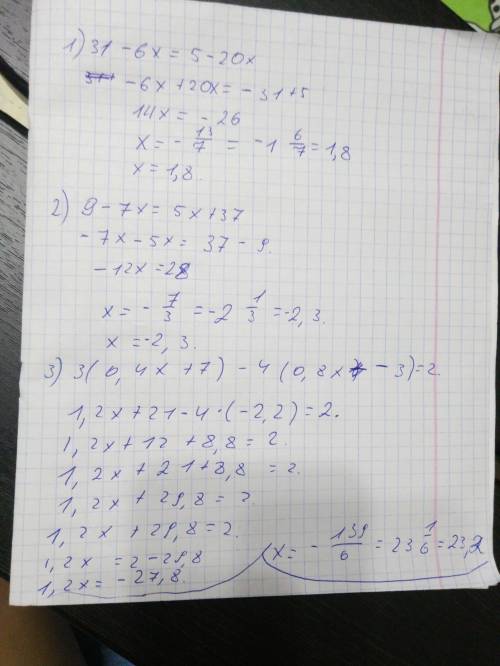 1) 31 - 6x = 5 - 20x
- 6x + 20x = - 31 + 5
14x = - 26
x = - 13/7 = -1 6/7 = 1,8
x = 1,8.
2) 9 - 7x = 5x + 37
- 7x - 5x = 37 - 9.
- 12x = 28
x = - 7/3 = -2 1/3 = -2, 3.
x = -2, 3.
3) 3(0,4x + 7) - 4 (0,8x - 3) = 2.
1,2x + 21 - 4 · (-2,2) = 2.
1,2x + 12 + 8,8 = 2.
1,2x + 21 + 8,8 = 2.
1,2x + 29,8 = 2
1,2x + 29,8 = 2.
1,2x = 2 - 29,8
1,2x = - 27,8.
x = - 139/6 = 23 1/6 = 23,2